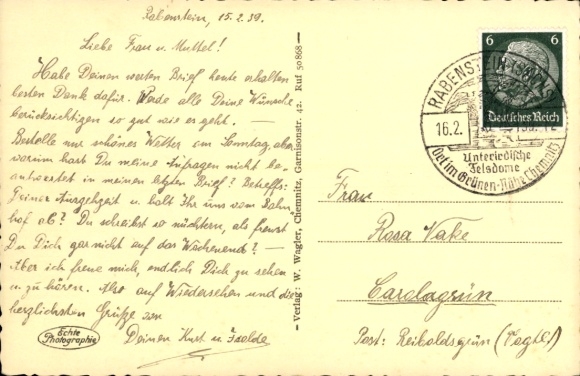 Rabenstein, 15.2.39.
Liebe Frau u. Muttel!
Habe Deinen werten Brief heute erhalten
besten Dank dafür. Werde alle Deine Wünsche
berücksichtigen so gut wie es geht. —
Bestelle nur schönes Wetter am Sonntag, aber
warum hast Du meine Anfragen nicht be-
antwortet in meinen letzten Brief? Betreffs:
Deiner u. holt Ihr uns vom Bahn
hof ab? Du schreibst so nüchtern, als freust
Du Dich gar nicht auf das Wochenend? —
Aber ich freue mich, endlich Dich zu sehen
u. zu hören. Also auf Wiedersehen und die
herzlichsten Grüße von
Deinen Kurt u. Isolde
Echte
Photographie
— Verlag: W. Wagler, Chemnitz, Garnisonstr. 42. Ruf 50868 —
6 6
Deutsches Reich
RABENSTEIN
16.2.
Unterirdische
Felsdome
Ort im Grünen - Nähe Chemnitz
Frau
Rosa Vake
Carolagrün
Post: Reiboldsgrün (Vogtl.)